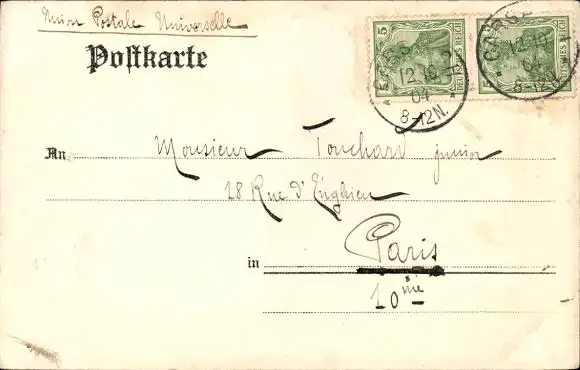 Union Postale Universelle
Postkarte
5 DEUTSCHES REICH
5 DEUTSCHES REICH
12.10.
04
8-12N.
12.10.
04
8-12N.
An Monsieur Touchard junior
28 Rue d'Enghien
in Paris
10me